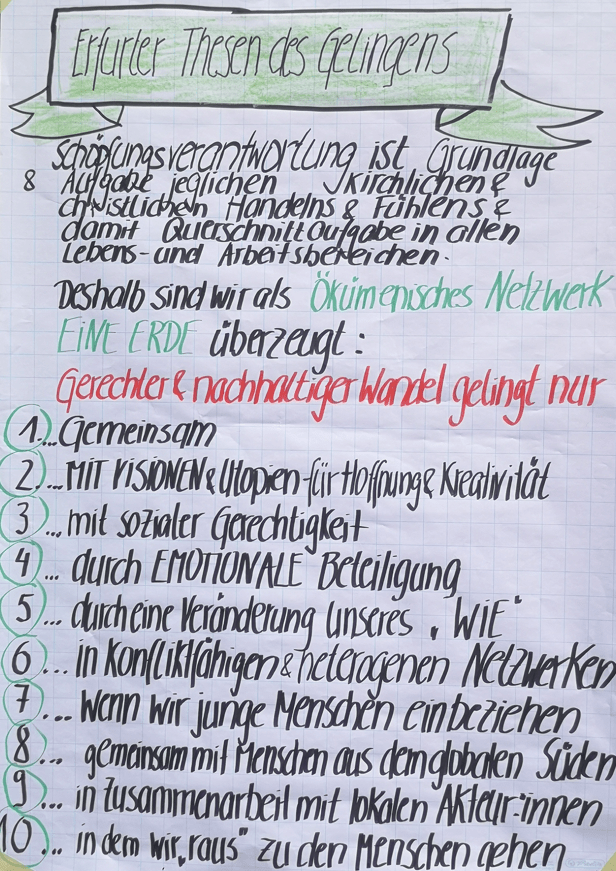 Erfurter Thesen des Gelingens
Schöpfungsverantwortung ist Grundlage
& Aufgabe jeglichen kirchlichen &
christlichen Handelns & Fühlens &
damit Querschnittaufgabe in allen
Lebens- und Arbeitsbereichen.
Deshalb sind wir als Ökumenisches Netzwerk
EINE ERDE überzeugt:
Gerechter & nachhaltiger Wandel gelingt nur
1. ...Gemeinsam
2. ...MIT VISIONEN & Utopien für Hoffnung & Kreativität
3 ... mit sozialer Gerechtigkeit
4 ... durch EMOTIONALE Beteiligung
5 ... durch eine Veränderung unseres "WIE"
6 ... in Konfliktfähigen & heterogenen Netzwerken
7 ... Wenn wir junge Menschen einbeziehen
8 ... gemeinsam mit Menschen aus dem globalen Süden
9 ... in Zusammenarbeit mit lokalen Akteur:innen
10 ... in dem wir „raus" zu den Menschen gehen